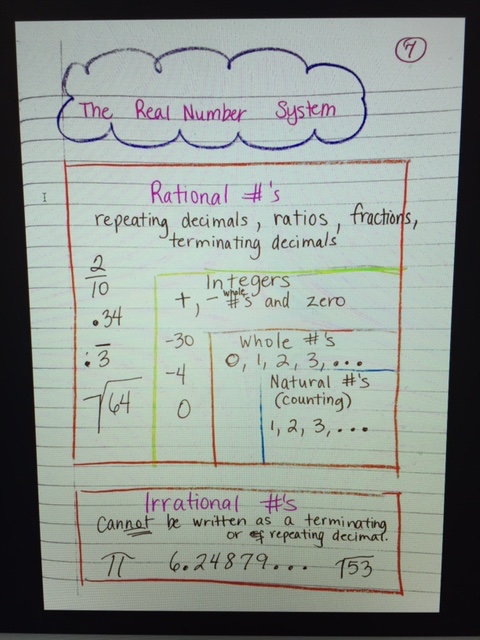 7
The Real Number System
Rational #'s
repeating decimals, ratios, fractions,
terminating decimals
2/10
.34
.3̅
√64
Integers
+, - whole #'s and zero
-30
-4
0
Whole #'s
0, 1, 2, 3, ...
Natural #'s
(counting)
1, 2, 3, ...
Irrational #'s
Cannot be written as a terminating
or repeating decimal.
π 6.24879... √53